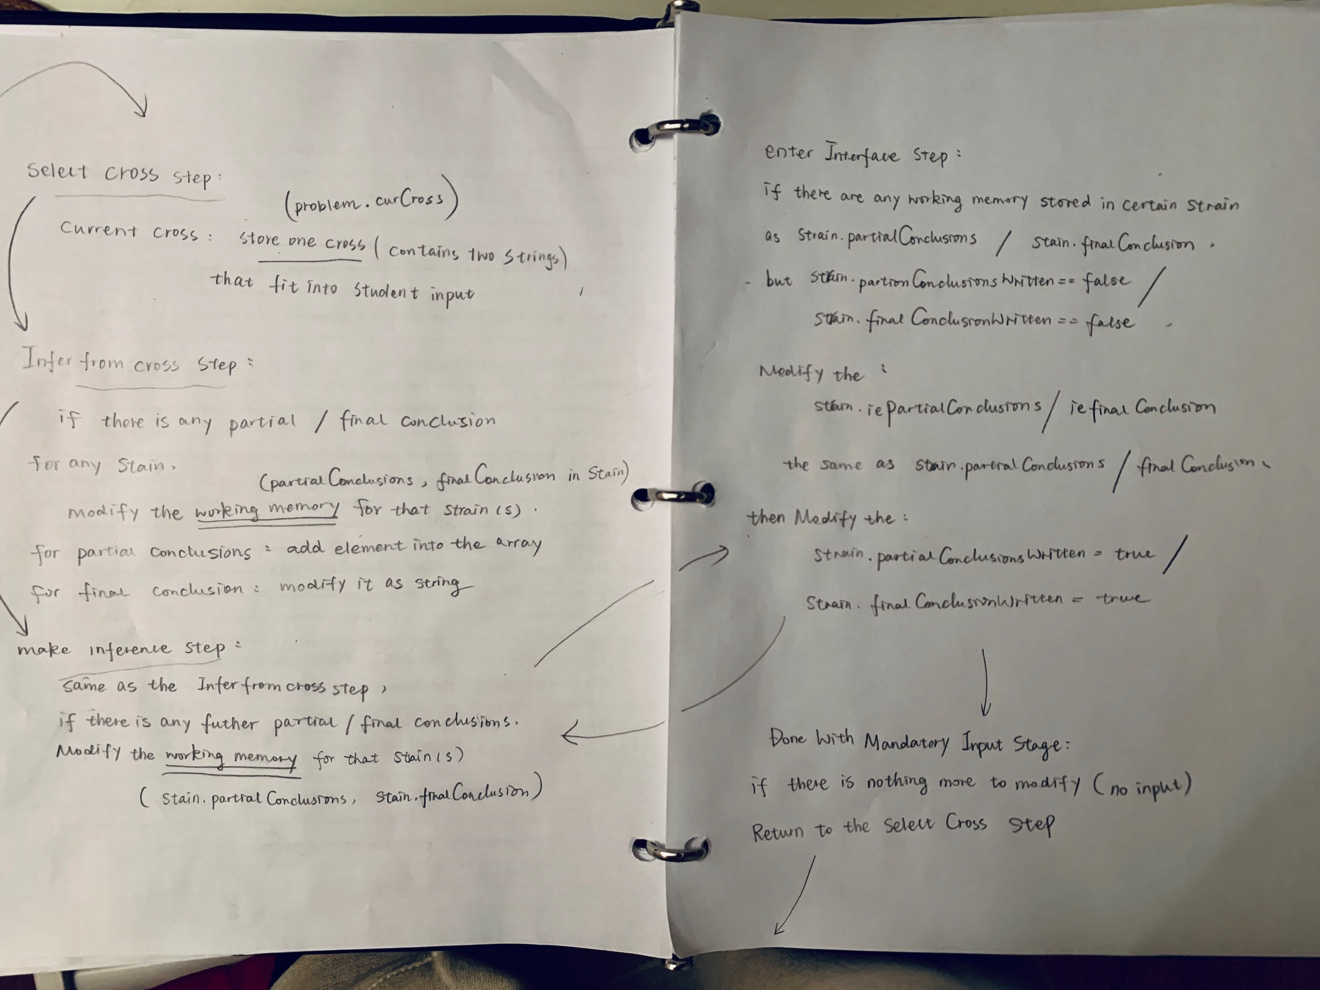 Select cross step:
(problem.curCross)
Current cross: store one cross (contains two strings)
that fit into student input
Infer from cross step:
if there is any partial / final conclusion
for any Stain.
(partialConclusions, finalConclusion in Stain)
modify the working memory for that Strain(s).
for partial conclusions: add element into the array
for final conclusion: modify it as string
make inference step:
same as the Infer from cross step,
if there is any futher partial / final conclusions.
Modify the working memory for that Stain(s)
(Stain.partialConclusions, Stain.finalConclusion)
enter Interface Step:
if there are any working memory stored in certain Strain
as Strain.partialConclusions / Stain.finalConclusion.
but Stain.partionConclusionsWritten == false /
Stain.finalConclusionWritten == false.
Modify the:
Stain.iePartialConclusions / iefinalConclusion
the same as Stain.partialConclusions / finalConclusion.
then Modify the:
Strain.partialConclusionsWritten = true /
Strain.finalConclusionWritten = true
Done With Mandatory Input Stage:
if there is nothing more to modify (no input)
Return to the Select Cross Step